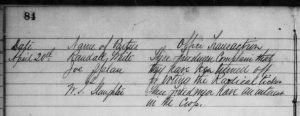 84
Date Name of Parties Office Transaction
April 20th Randall White These freedmen Complain that
Joe they have been turned off
for voting the Radical ticket
W. S. Slaughter These freedmen have an interest
in the Crop.